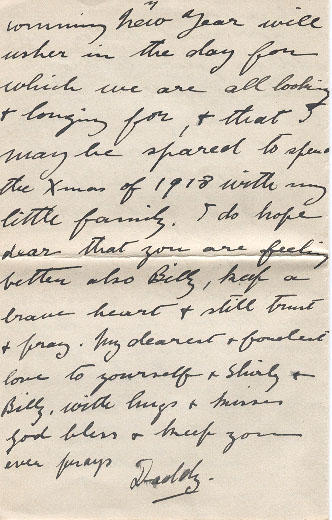 coming New Year will
usher in the day for
which we are all looking
& longing for, & that I
may be spared to spend
the Xmas of 1918 with my
little family. I do hope
dear that you are feeling
better also Billy, keep a
brave heart & still trust
& pray. My dearest & fondest
love to yourself & Shirly &
Billy. with hugs & kisses
God bless & keep you
ever prays Daddy.